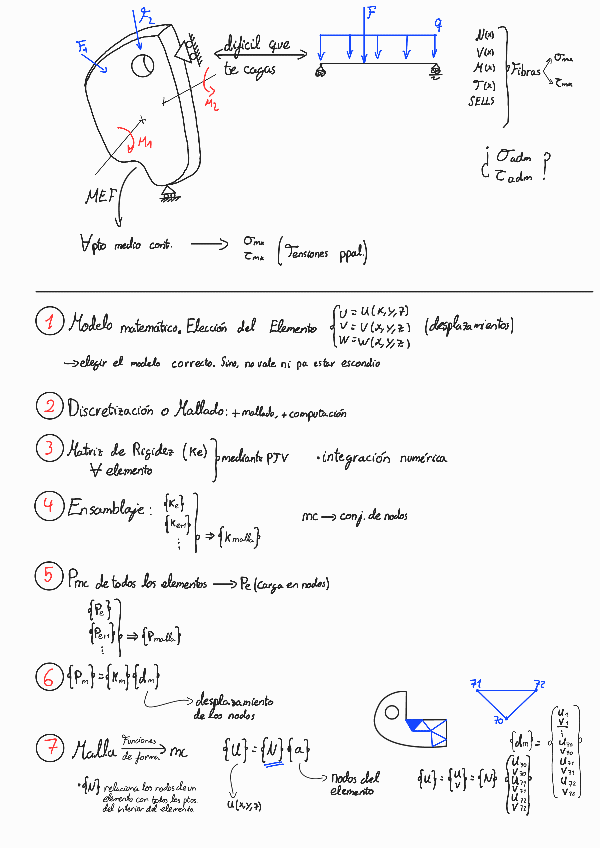 F₁
F₂
M₁
M₂
dificil que
te cagas
F
q
N(x)
V(x)
M(x)
T(x)
SELLS
Fibras
σmx
τmx
¿ σadm
τadm ?
MEF
∀pto medio cont. → σmx
τmx (Tensiones ppal.)
1 Modelo matemático. Elección del Elemento
U = U(x,y,z)
V = V(x,y,z)
W = W(x,y,z)
(desplazamientos)
→ elegir el modelo correcto. Sino, no vale ni pa estar escondio
2 Discretización o Mallado: + mallado, + computación
3 Matriz de Rigidez (Ke)
∀ elemento
mediante PTV
• integración numérica
4 Ensamblaje:
{Ke}
{Ke+1}
⋮
⇒ {Kmalla}
mc → conj. de nodos
5 Pmc de todos los elementos → Pe (carga en nodos)
{Pe}
{Pe+1}
⋮
⇒ {Pmalla}
6 {Pm} = {Km}{dm}
desplazamiento
de los nodos
7 Malla
Funciones
de forma
→ mc
{U} = {N}{a}
U(x,y,z)
nodos del
elemento
• {N} relaciona los nodos de un
elemento con todos los ptos.
del interior del elemento.
71
72
70
{U} = {U
V} = {N}
{U70
V70
U71
V71
U72
V72}
{dm} =
{U1
V1
⋮
U70
V70
U71
V71
U72
V72}